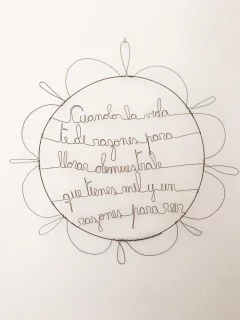 Cuando la vida
te de razones para
llorar demuestrale
que tienes mil y un
razones para reir